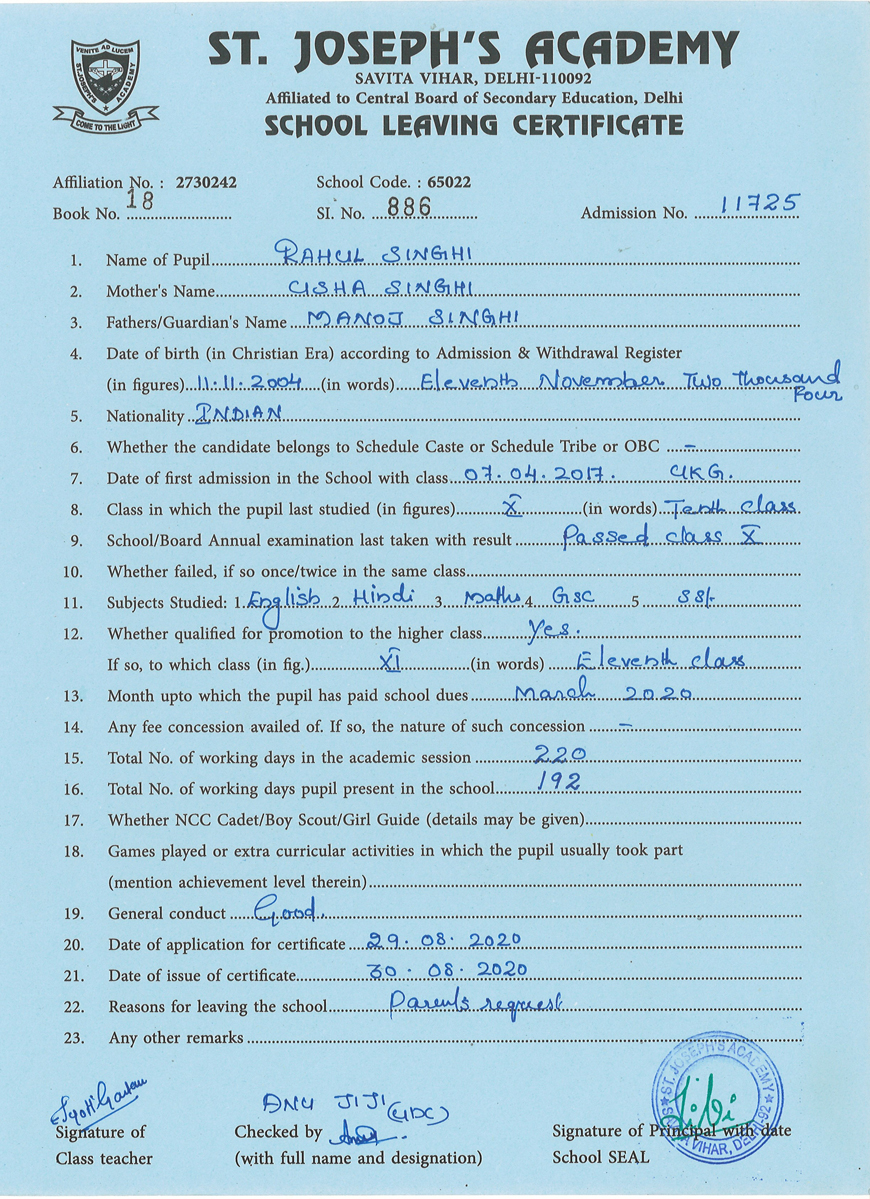 VENITE AD LUCEM
ST. JOSEPH'S ACADEMY
COME TO THE LIGHT
ST. JOSEPH'S ACADEMY
SAVITA VIHAR, DELHI-110092
Affiliated to Central Board of Secondary Education, Delhi
SCHOOL LEAVING CERTIFICATE
Affiliation No. : 2730242 School Code. : 65022
Book No. 18 SI. No. 886 Admission No. 11725
1. Name of Pupil RAHUL SINGHI
2. Mother's Name USHA SINGHI
3. Fathers/Guardian's Name MANOJ SINGHI
4. Date of birth (in Christian Era) according to Admission & Withdrawal Register
(in figures) 11.11.2004 (in words) Eleventh November Two Thousand
Four
5. Nationality INDIAN
6. Whether the candidate belongs to Schedule Caste or Schedule Tribe or OBC –
7. Date of first admission in the School with class 07.04.2017. UKG.
8. Class in which the pupil last studied (in figures) X (in words) Tenth class
9. School/Board Annual examination last taken with result Passed class X
10. Whether failed, if so once/twice in the same class
11. Subjects Studied: 1. English 2. Hindi 3. Maths 4. GSC 5. SSt
12. Whether qualified for promotion to the higher class Yes.
If so, to which class (in fig.) XI (in words) Eleventh class
13. Month upto which the pupil has paid school dues March 2020
14. Any fee concession availed of. If so, the nature of such concession –
15. Total No. of working days in the academic session 220
16. Total No. of working days pupil present in the school 192
17. Whether NCC Cadet/Boy Scout/Girl Guide (details may be given)
18. Games played or extra curricular activities in which the pupil usually took part
(mention achievement level therein)
19. General conduct Good.
20. Date of application for certificate 29.08.2020
21. Date of issue of certificate 30.08.2020
22. Reasons for leaving the school Parents request
23. Any other remarks
Jyoti Gautam ANU JIJI (UDC)
Signature of Checked by Signature of Principal with date
Class teacher (with full name and designation) School SEAL
ST. JOSEPH'S ACADEMY
VIHAR, DELHI-92